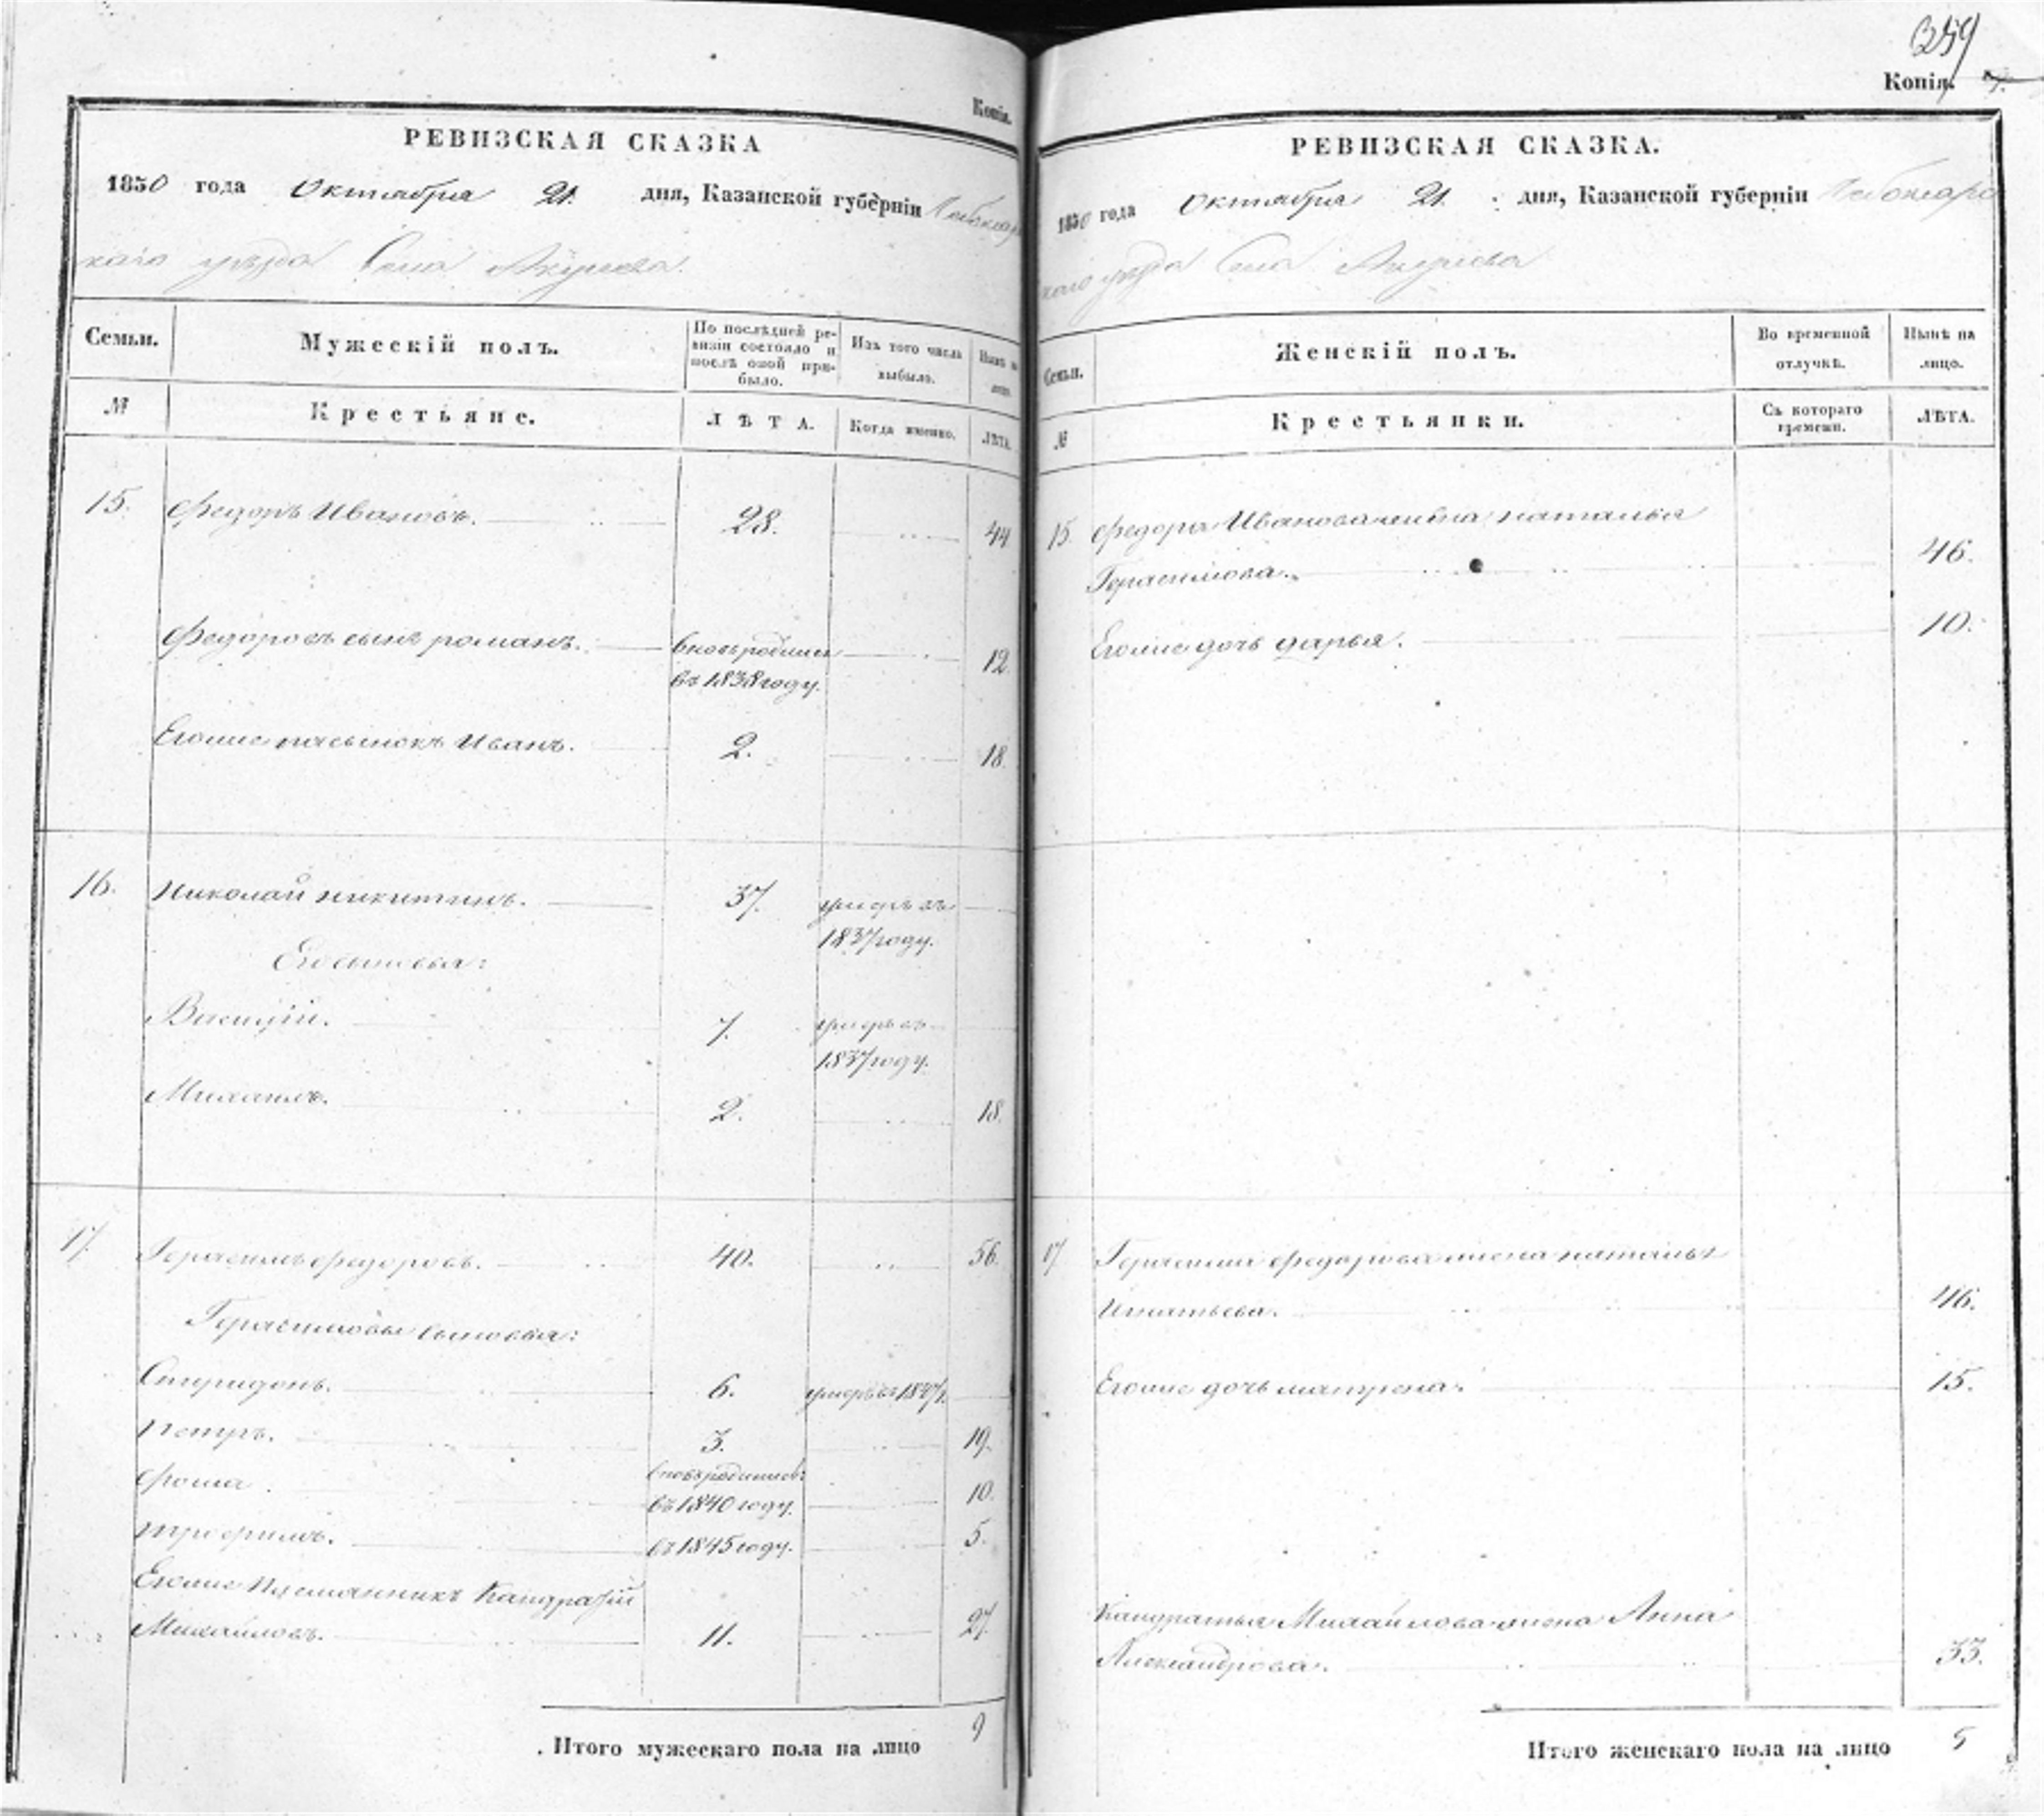 Копія.
РЕВИЗСКАЯ СКАЗКА
1850 года Октября 21 дня, Казанской губерніи Чебоксар
скаго уѣзда Села Акулева.
Семьи.
Мужескій полъ.
По послѣдней ре-
визіи состояло и
послѣ оной при-
было.
Изъ того числа
выбыло.
Нынѣ на
лицо.
№
Крестьяне.
ЛѢТА.
Когда именно.
ЛѢТА.
15. Федоръ Ивановъ. 28. 44
Федоровъ сынъ романъ. вновь родился 12
въ 1838 году.
Егоже пасынокъ Иванъ. 2. 18.
16. Николай никитинъ. 37. умеръ въ
1837 году.
Его сыновья:
Василій. 7. умеръ въ
1837 году.
Михаилъ. 2. 18.
17. Герасимъ федоровъ. 40. 56.
Герасимовы сыновья:
Спиридонъ. 6. умеръ въ 1847 г.
Петръ. 3. 19.
фома. вновь родился
въ 1840 году. 10.
трофимъ. въ 1845 году. 5.
Егоже Племянникъ Кандратій
Михайловъ. 11. 27.
Итого мужескаго пола на лицо 9
359
Копія.
РЕВИЗСКАЯ СКАЗКА.
1850 года Октября 21. дня, Казанской губерніи Чебоксарс
каго уѣзда Села Акулева
Семьи.
Женскій полъ.
Во временной
отлучкѣ.
Нынѣ на
лицо.
№
Крестьянки.
Съ котораго
времени.
ЛѢТА.
15. Федора Иванова жена наталья
Герасимова. 46.
Егоже дочь дарья. 10.
17 Герасима федорова жена наталья
Игнатьева. 46.
Егоже дочь матрена. 15.
Кандратья Михайлова жена Анна
Александрова. 33.
Итого женскаго пола на лицо 5